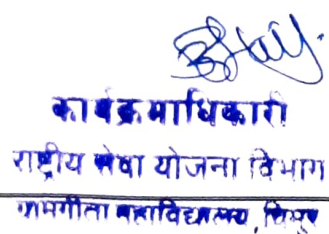 कार्यक्रमाधिकारी
राष्ट्रीय सेवा योजना विभाग
ग्रामगीता महाविद्यालय, चिमूर